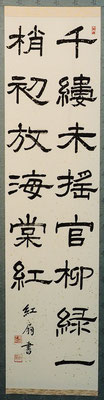 千縷未搖官柳緑一
梢初放海棠紅
紅扇書